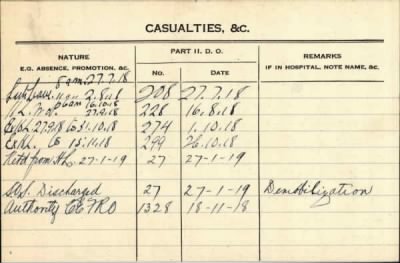 CASUALTIES, &C.
NATURE
E.G. ABSENCE, PROMOTION, &C.
PART II. D. O.
No.
DATE
REMARKS
IF IN HOSPITAL, NOTE NAME, &C.
8 am. 27.7.18
2.8.18 208 27.7.18
6 am 16.10.18
27.9.18 228 16.8.18
27.9.18 to 31.10.18 274 1.10.18
to 15.11.18 299 26.10.18
from 27-1-19 27 27-1-19
S.O.S. Discharged 27 27-1-19 Demobilization
Authority CEFRO 1328 18-11-18